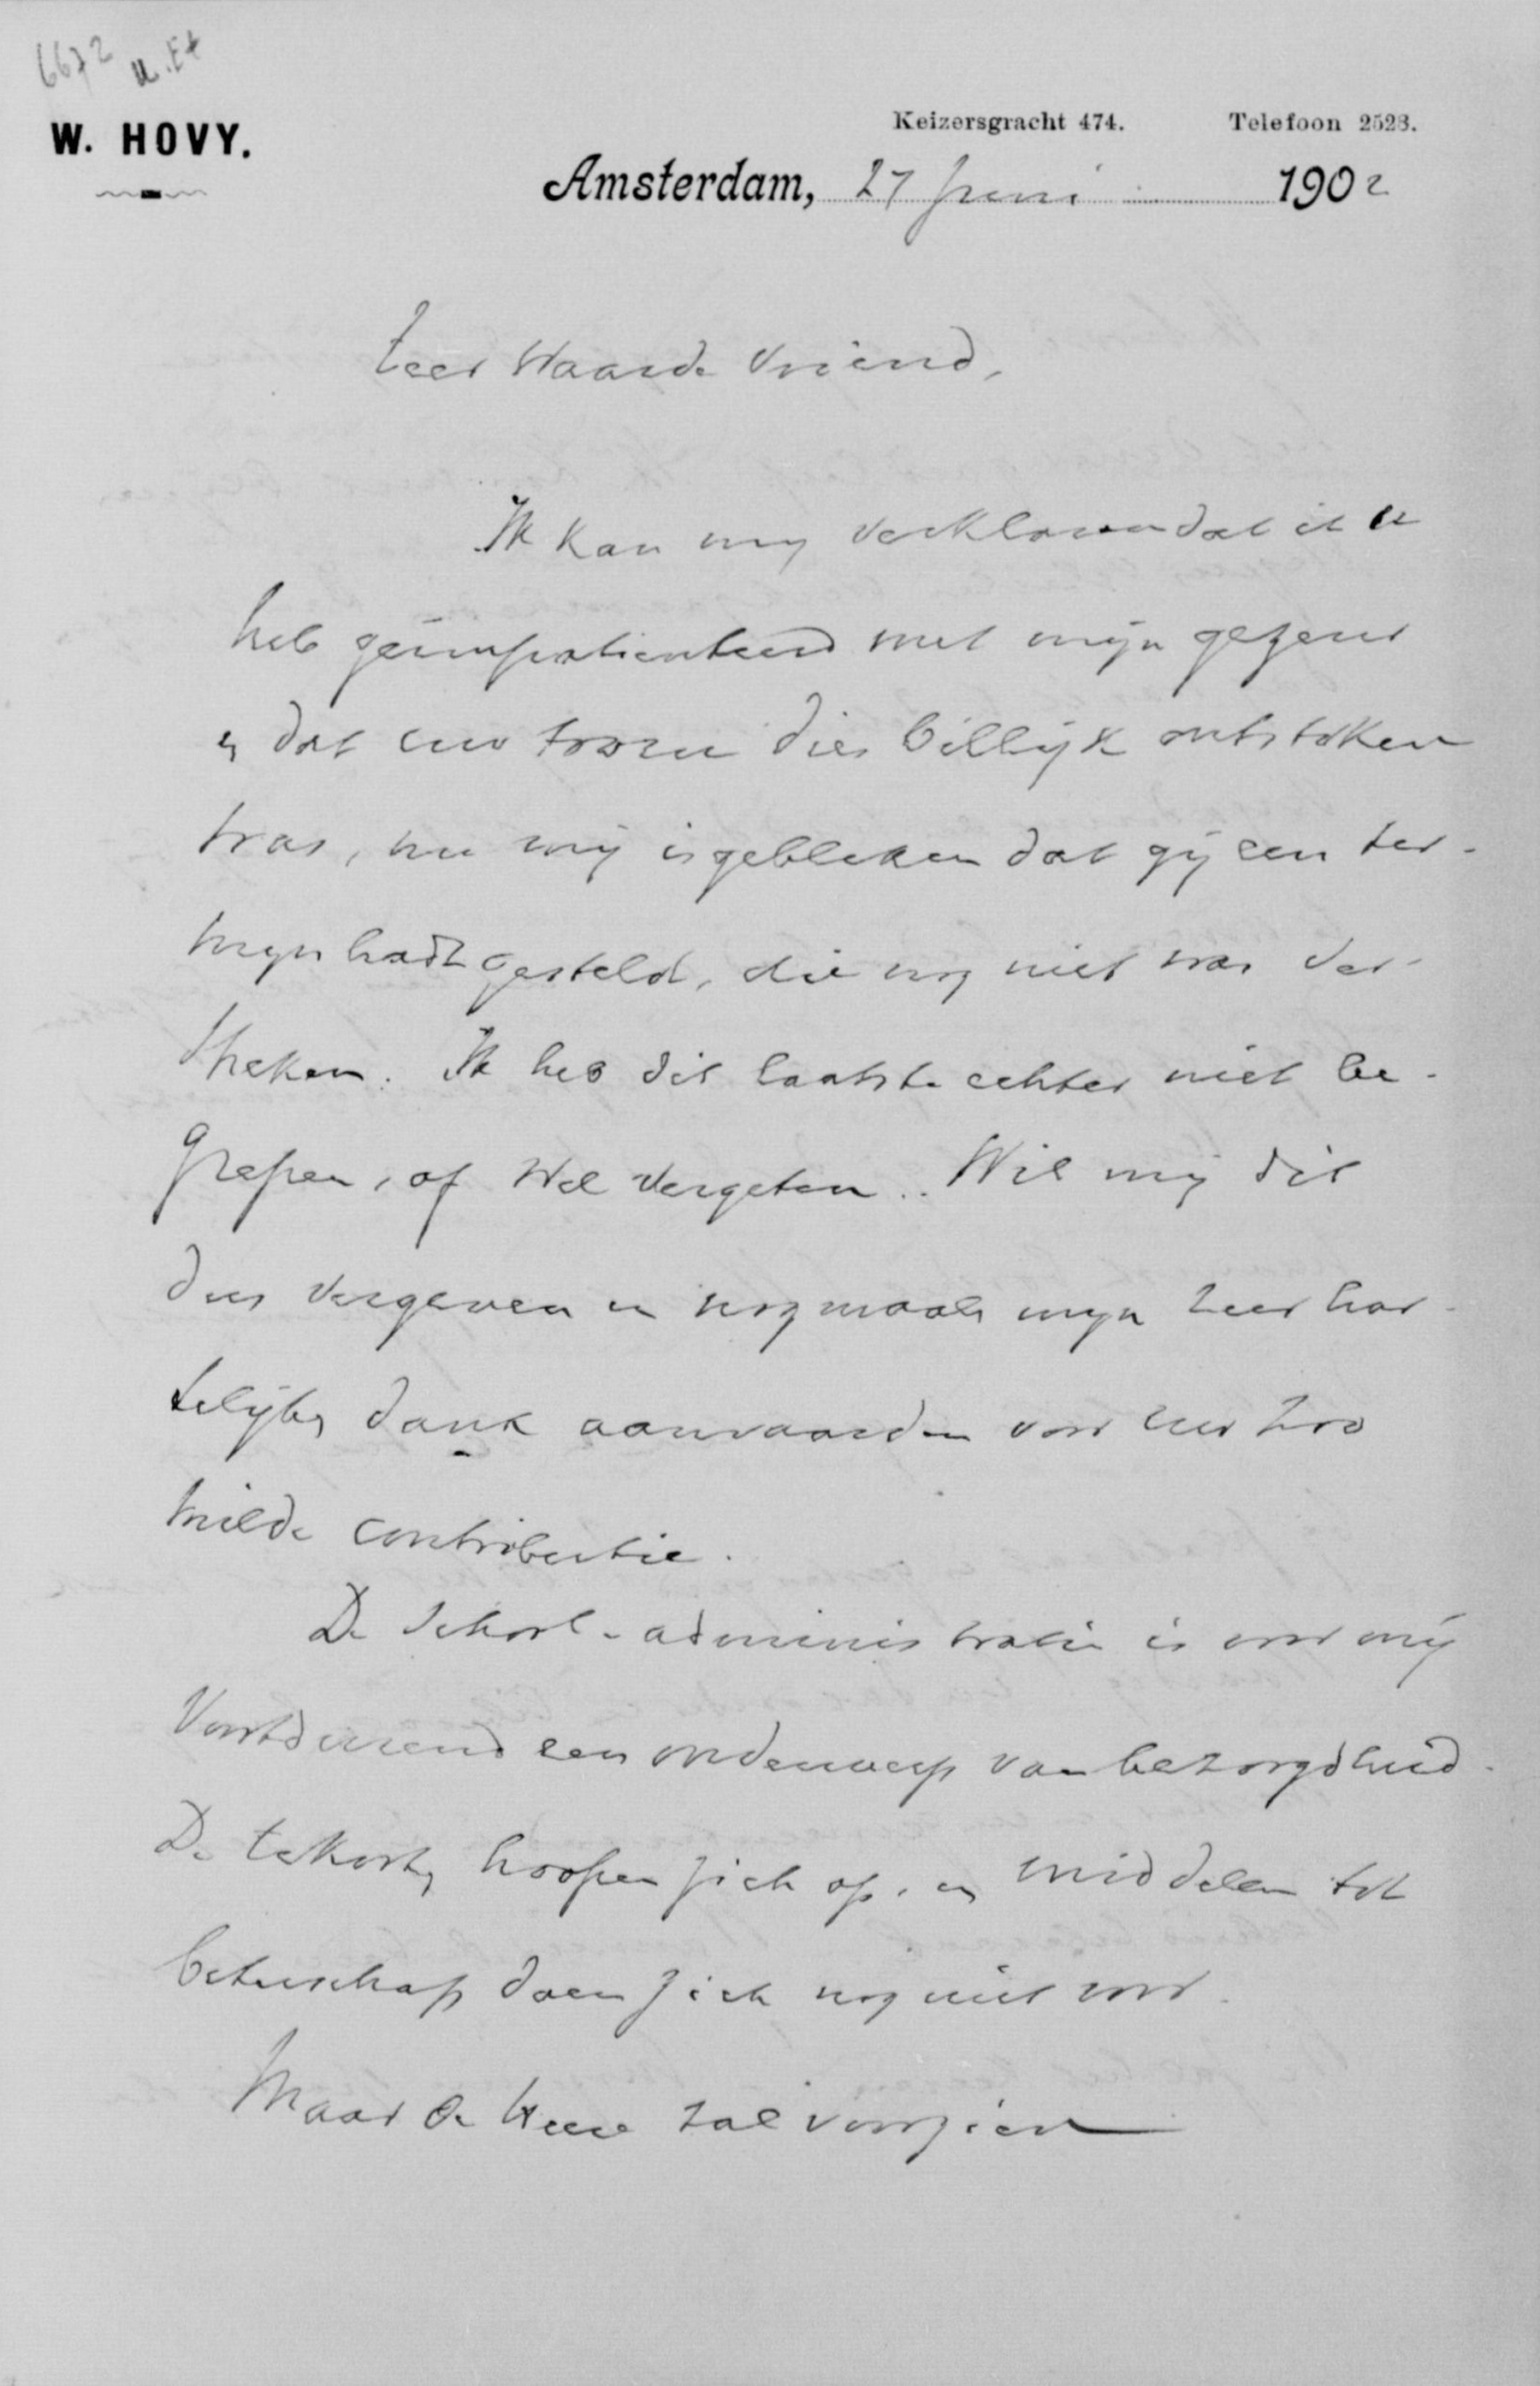 6672 
W. HOVY.
Keizersgracht 474. Telefoon 2528.
Amsterdam, 27 Juni 1902
Zeer Waarde Vriend,
Ik kan mij verklaren dat ik u
heb geïmpatienteerd met mijn gezeur
en dat uw toorn dies billijk ontstoken
was, nu mij is gebleken dat gij een ter-
mijn hadt gesteld, die nog niet was ver-
streken. Ik heb dit laatste echter niet be-
grepen, of wel vergeten. Wil mij dit
dus vergeven en nogmaals mijn zeer har-
telijken dank aanvaarden voor uw zoo
milde contributie.
De School-administratie is voor mij
voortdurend een onderwerp van bezorgdheid.
De tekorten hoopen zich op, en middelen tot
beterschap doen zich nog niet voor.
Maar de Heere zal voorzien